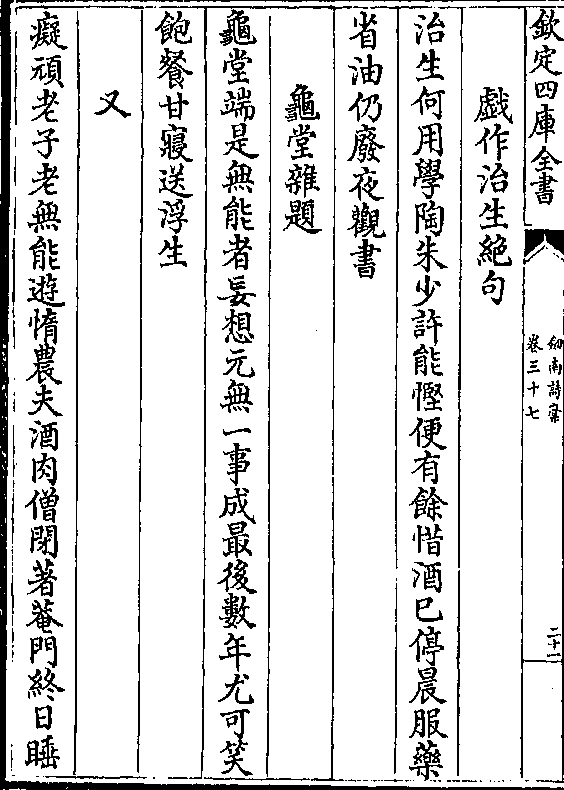 欽定四庫全書
劒南詩稾
卷三十七
二十一
戲作治生絶句
治生何用學陶朱少許能慳便有餘惜酒已停晨服藥
省油仍廢夜觀書
龜堂雜題
龜堂端是無能者妄想元無一事成最後數年尤可笑
飽餐甘寢送浮生
又
癡頑老子老無能遊惰農夫酒肉僧閉著菴門終日睡